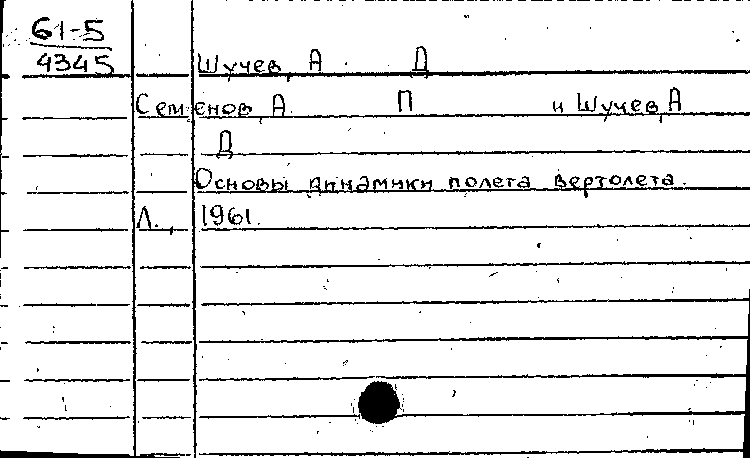 61-5
4345
Шучев, А. Д
Семенов, А. П и Шучев, А
Д
Основы динамики полета вертолета.
Л., 1961.